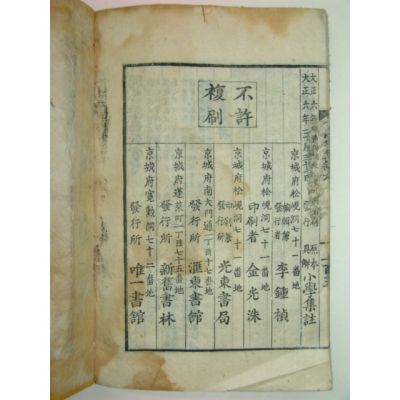 不許
複刷
大正六年
大正六年
小學集註
京城府松峴洞七十一番地
編輯兼
發行者 李鍾楨
京城府松峴洞七十一番地
印刷者 金光洙
京城府松峴洞七十一番地
印刷兼
發行所 光東書局
京城府南大門通一丁目十七番地
發行所 滙東書館
京城府蓬萊町一丁目七十五番地
發行所 新舊書林
京城府寬勳洞七十二番地
發行所 唯一書館